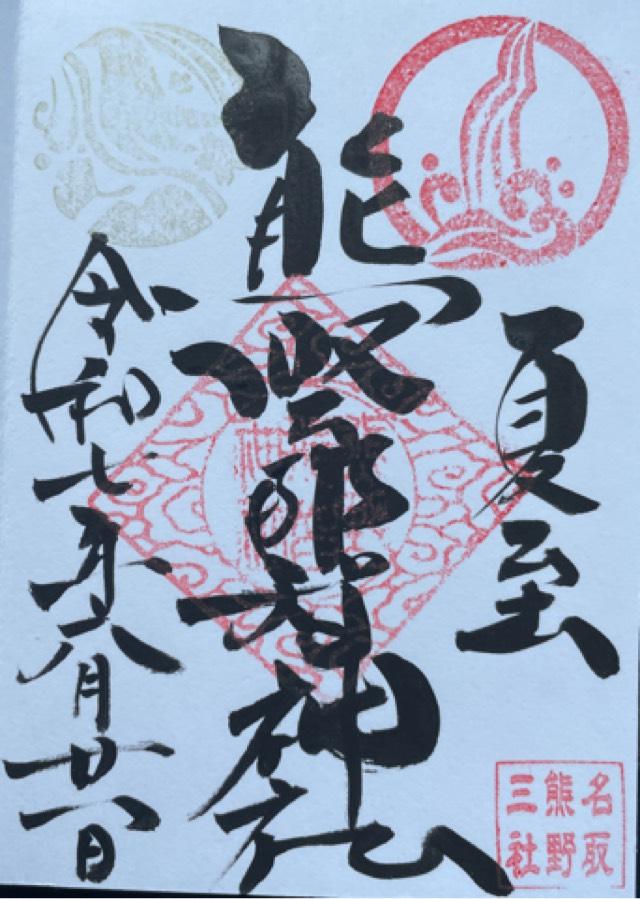 夏至
熊野那智神社
令和七年六月廿一日
名取
熊野
三社